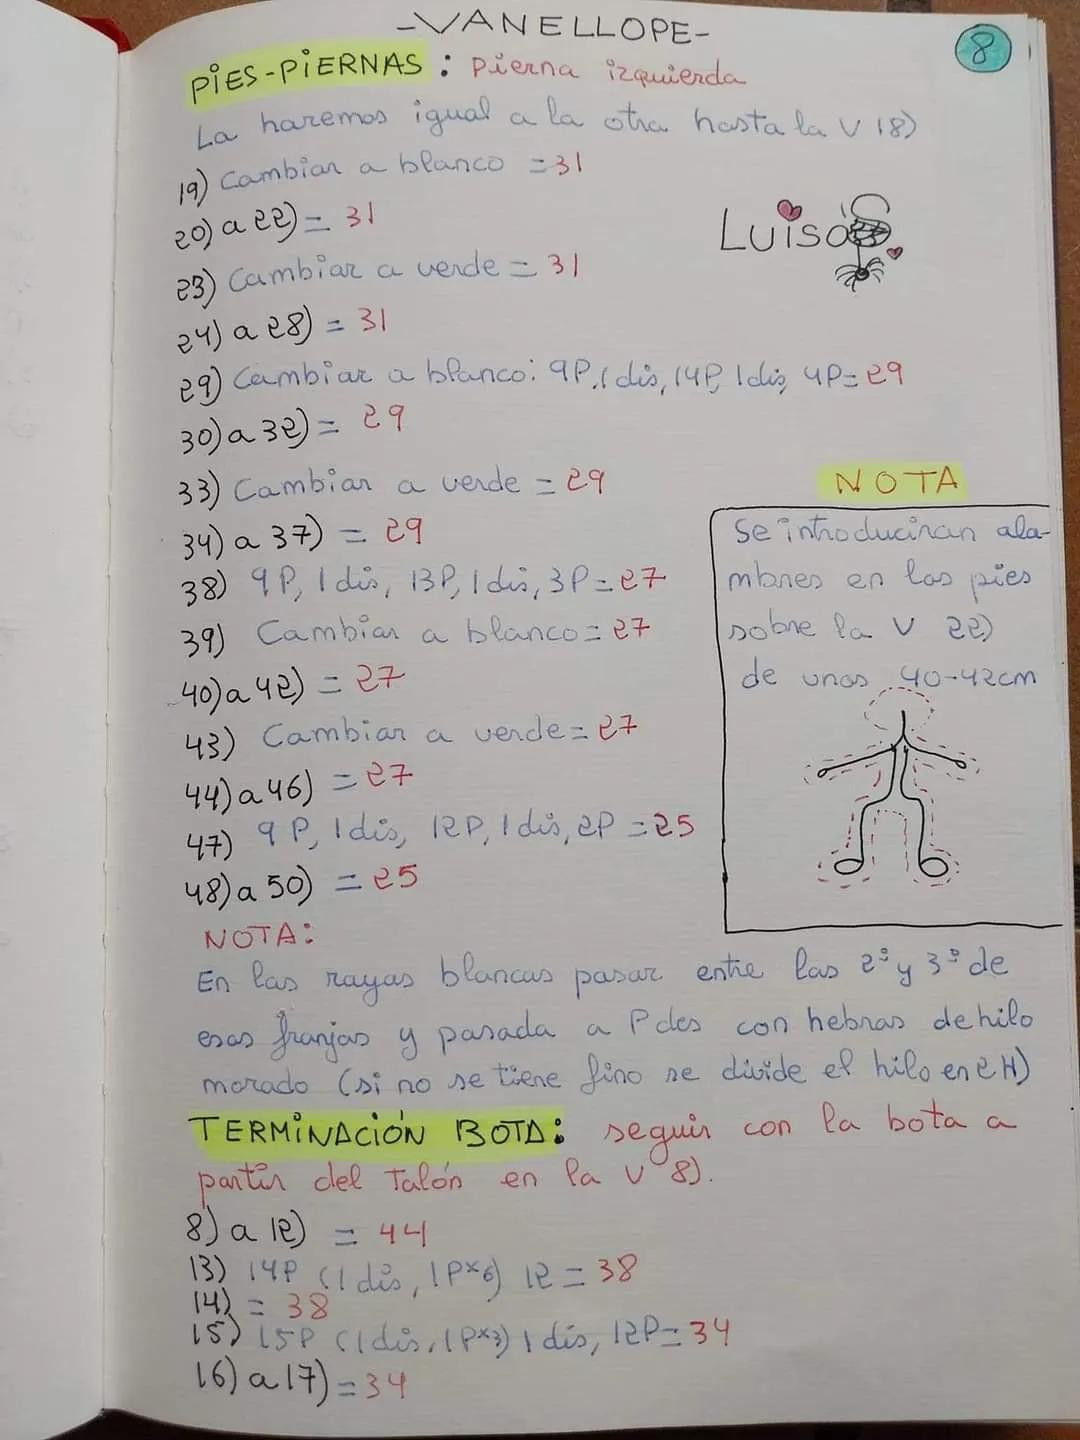 -VANELLOPE-
8
PiES-PiERNAS: Pierna izquierda
La haremos igual a la otra hasta la V 18)
19) Cambiar a blanco = 31
20) a 22) = 31
LuisaS
23) Cambiar a verde = 31
24) a 28) = 31
29) Cambiar a blanco: 9P, 1 dis, 14P, 1 dis, 4P = 29
30) a 32) = 29
33) Cambiar a verde = 29
34) a 37) = 29
38) 9P, 1 dis, 13P, 1 dis, 3P = 27
39) Cambiar a blanco = 27
40) a 42) = 27
43) Cambiar a verde = 27
44) a 46) = 27
47) 9P, 1 dis, 12P, 1 dis, 2P = 25
48) a 50) = 25
NOTA
Se introduciran ala-
mbres en los pies
sobre la V 22)
de unos 40-42cm
NOTA:
En las rayas blancas pasar entre las 2º y 3º de
esas franjas y pasada a P des con hebras de hilo
morado (si no se tiene fino se divide el hilo en 2 H)
TERMiNACiÓN BOTA: seguir con la bota a
partir del Talón en la V 8).
8) a 12) = 44
13) 14P (1 dis, 1P×6) 12 = 38
14) = 38
15) 15P (1 dis, 1P×3) 1 dis, 12P = 34
16) a 17) = 34